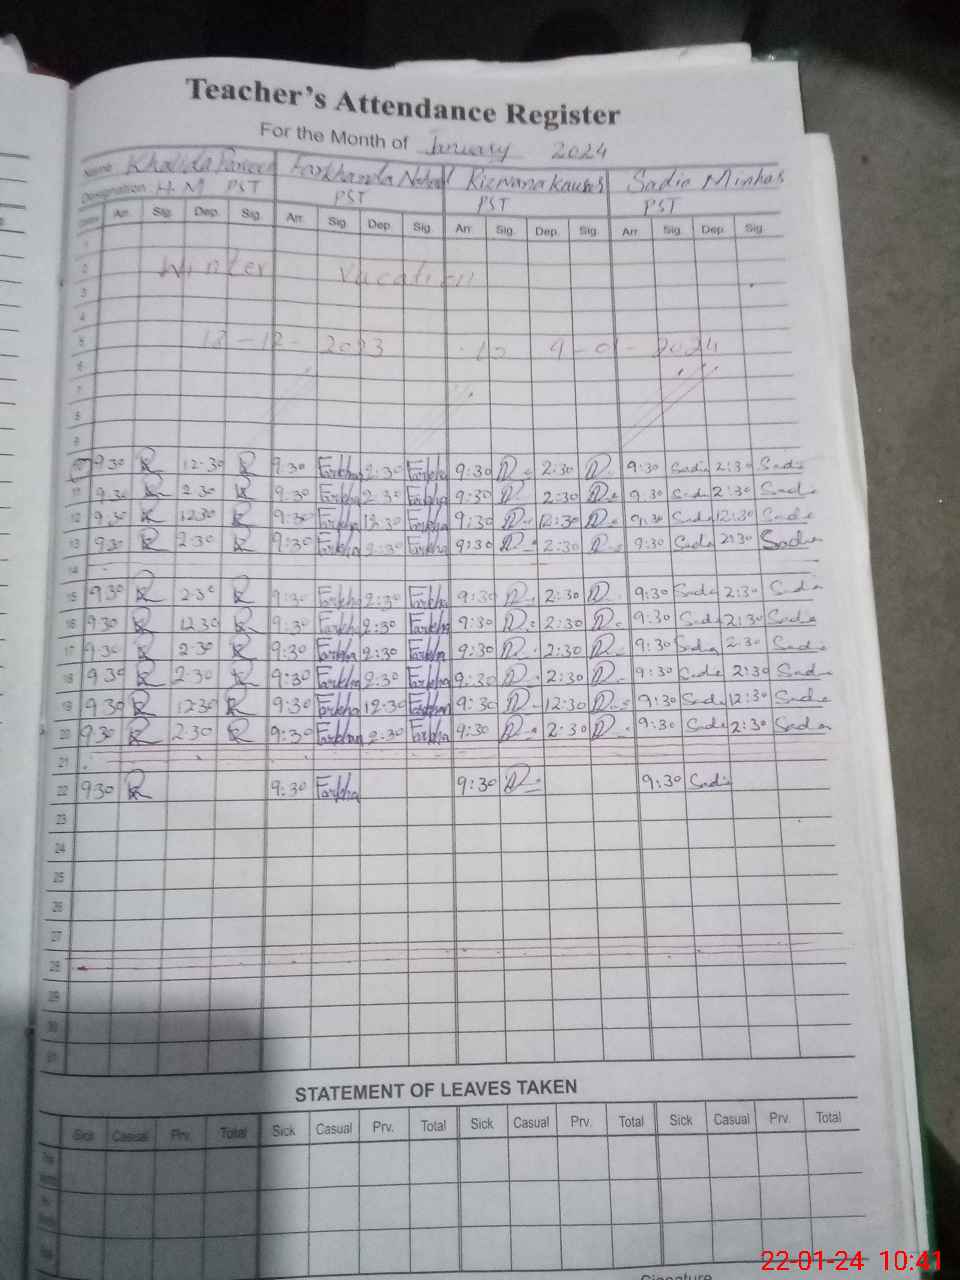 Teacher's Attendance Register
For the Month of January 2024
Name Khalida Parveen Farkhanda Rizwana Kausar Sadia Minhas
Designation H.M PST PST PST PST
Arr. Sig. Dep. Sig. Arr. Sig. Dep. Sig. Arr. Sig. Dep. Sig. Arr. Sig. Dep. Sig.
1
2 Winter Vacation
3
4
5 18-12-2023 to 9-01-2024
6
7
8
9
10 9:30 12:30 9:30 Farkha 2:30 Farkha 9:30 2:30 9:30 Sadia 2:30 Sadia
11 9:30 2:30 9:30 Farkha 2:30 Farkha 9:30 2:30 9:30 Sadia 2:30 Sadia
12 9:30 12:30 9:30 Farkha 12:30 Farkha 9:30 12:30 9:30 Sadia 12:30 Sadia
13 9:30 2:30 9:30 Farkha 2:30 Farkha 9:30 2:30 9:30 Sadia 2:30 Sadia
14
15 9:30 2:30 9:30 Farkha 2:30 Farkha 9:30 2:30 9:30 Sadia 2:30 Sadia
16 9:30 12:30 9:30 Farkha 2:30 Farkha 9:30 2:30 9:30 Sadia 2:30 Sadia
17 9:30 2:30 9:30 Farkha 2:30 Farkha 9:30 2:30 9:30 Sadia 2:30 Sadia
18 9:30 2:30 9:30 Farkha 2:30 Farkha 9:30 2:30 9:30 Sadia 2:30 Sadia
19 9:30 12:30 9:30 Farkha 12:30 Farkha 9:30 12:30 9:30 Sadia 12:30 Sadia
20 9:30 2:30 9:30 Farkha 2:30 Farkha 9:30 2:30 9:30 Sadia 2:30 Sadia
21
22 9:30 9:30 Farkha 9:30 9:30 Sadia
23
24
25
26
27
28
29
30
31
STATEMENT OF LEAVES TAKEN
Sick Casual Prv. Total Sick Casual Prv. Total Sick Casual Prv. Total Sick Casual Prv. Total
Signature
22-01-24 10:41